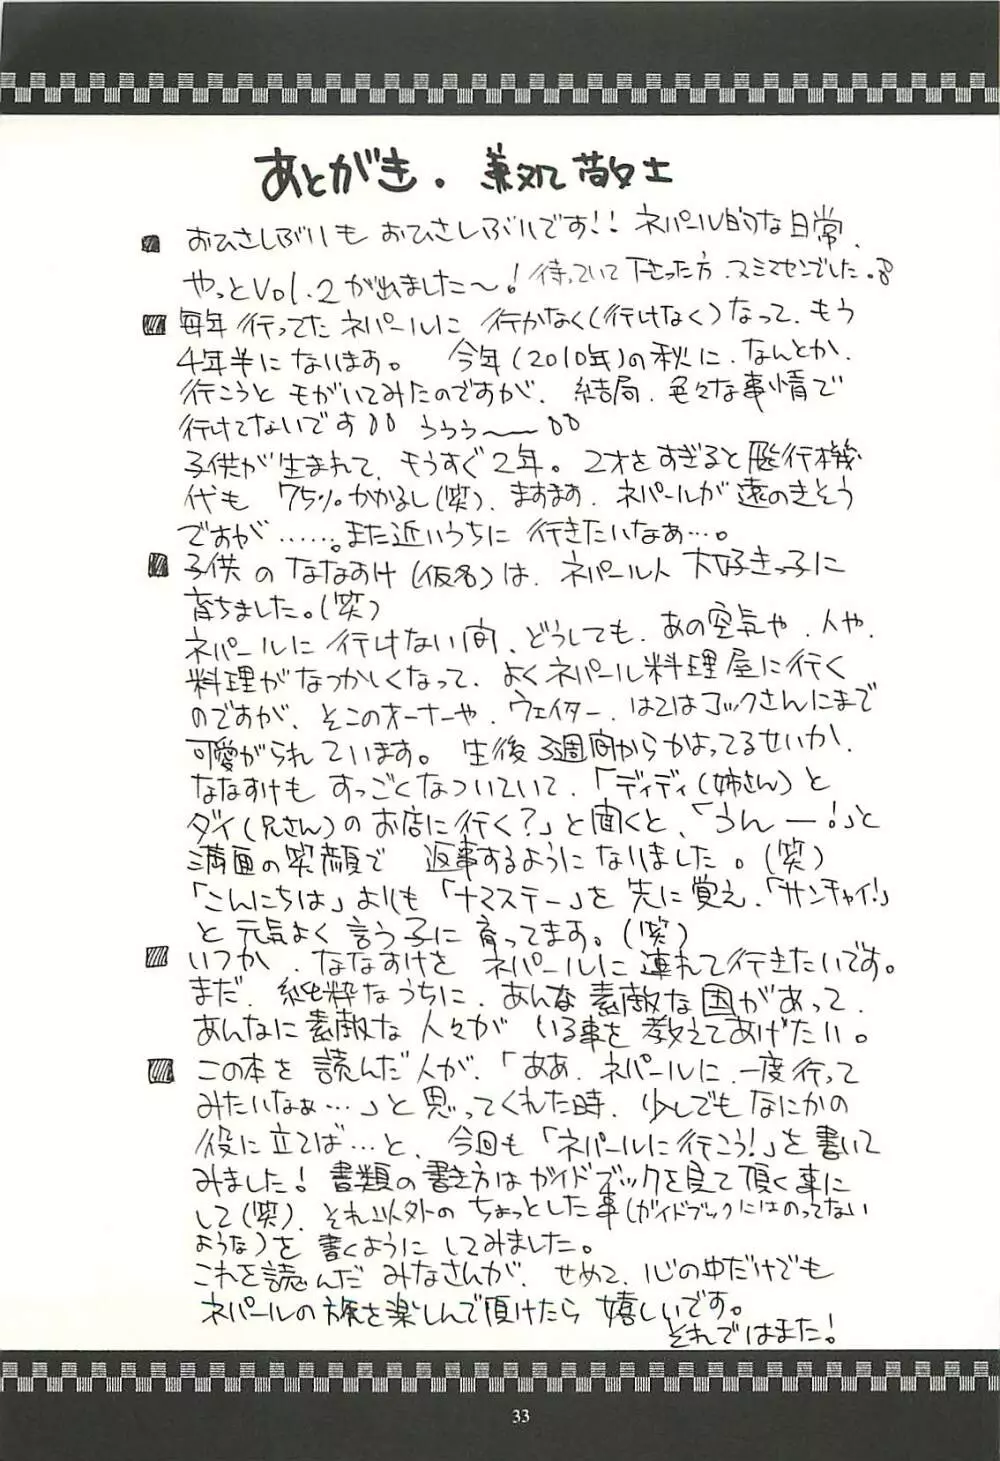 あとがき. 兼処敬士
おひさしぶりもおひさしぶりです!! ネパール的な日常、
やっとVol.2が出ました〜! 待っていて下さった方、スミマセンでした。
毎年行ってたネパールに行かなく(行けなく)なって、もう
4年半になります。 今年(2010年)の秋に、なんとか、
行こうとモがいてみたのですが、結局、色々な事情で
行けてないです うぅぅ〜
子供が生まれて、もうすぐ2年。2才をすぎると飛行機
代も75%かかるし(笑)、ますます、ネパールが遠のきそう
ですが……。また近いうちに行きたいなぁ…。
子供のななすけ(仮名)は、ネパール人大好きっ子に
育ちました。(笑)
ネパールに行けない間、どうしても、あの空気や、人や、
料理がなつかしくなって、よくネパール料理屋に行く
のですが、そこのオーナーや、ウェイター、はてはコックさんにまで
可愛がられています。 生後3週間からかよってるせいか、
ななすけもすっごくなついていて、「ディディ(姉さん)と
ダイ(兄さん)のお店に行く?」と聞くと、「うんー!」と
満面の笑顔で返事するようになりました。(笑)
「こんにちは」よりも「ナマステー」を先に覚え、「サンチャイ!」
と元気よく言う子に育ってます。(笑)
いつか、ななすけをネパールに連れて行きたいです。
まだ、純粋なうちに、あんな素敵な国があって、
あんなに素敵な人々がいる事を教えてあげたい。
この本を読んだ人が、「ああ、ネパールに、一度行って
みたいなぁ…」と思ってくれた時、少しでもなにかの
役に立てば…と、今回も「ネパールに行こう!」を書いて
みました! 書類の書き方はガイドブックを見て頂く事に
して(笑)、それ以外のちょっとした事(ガイドブックにはのってない
ような)を書くようにしてみました。
これを読んだみなさんが、せめて、心の中だけでも
ネパールの旅を楽しんで頂けたら嬉しいです。
それではまた!
33